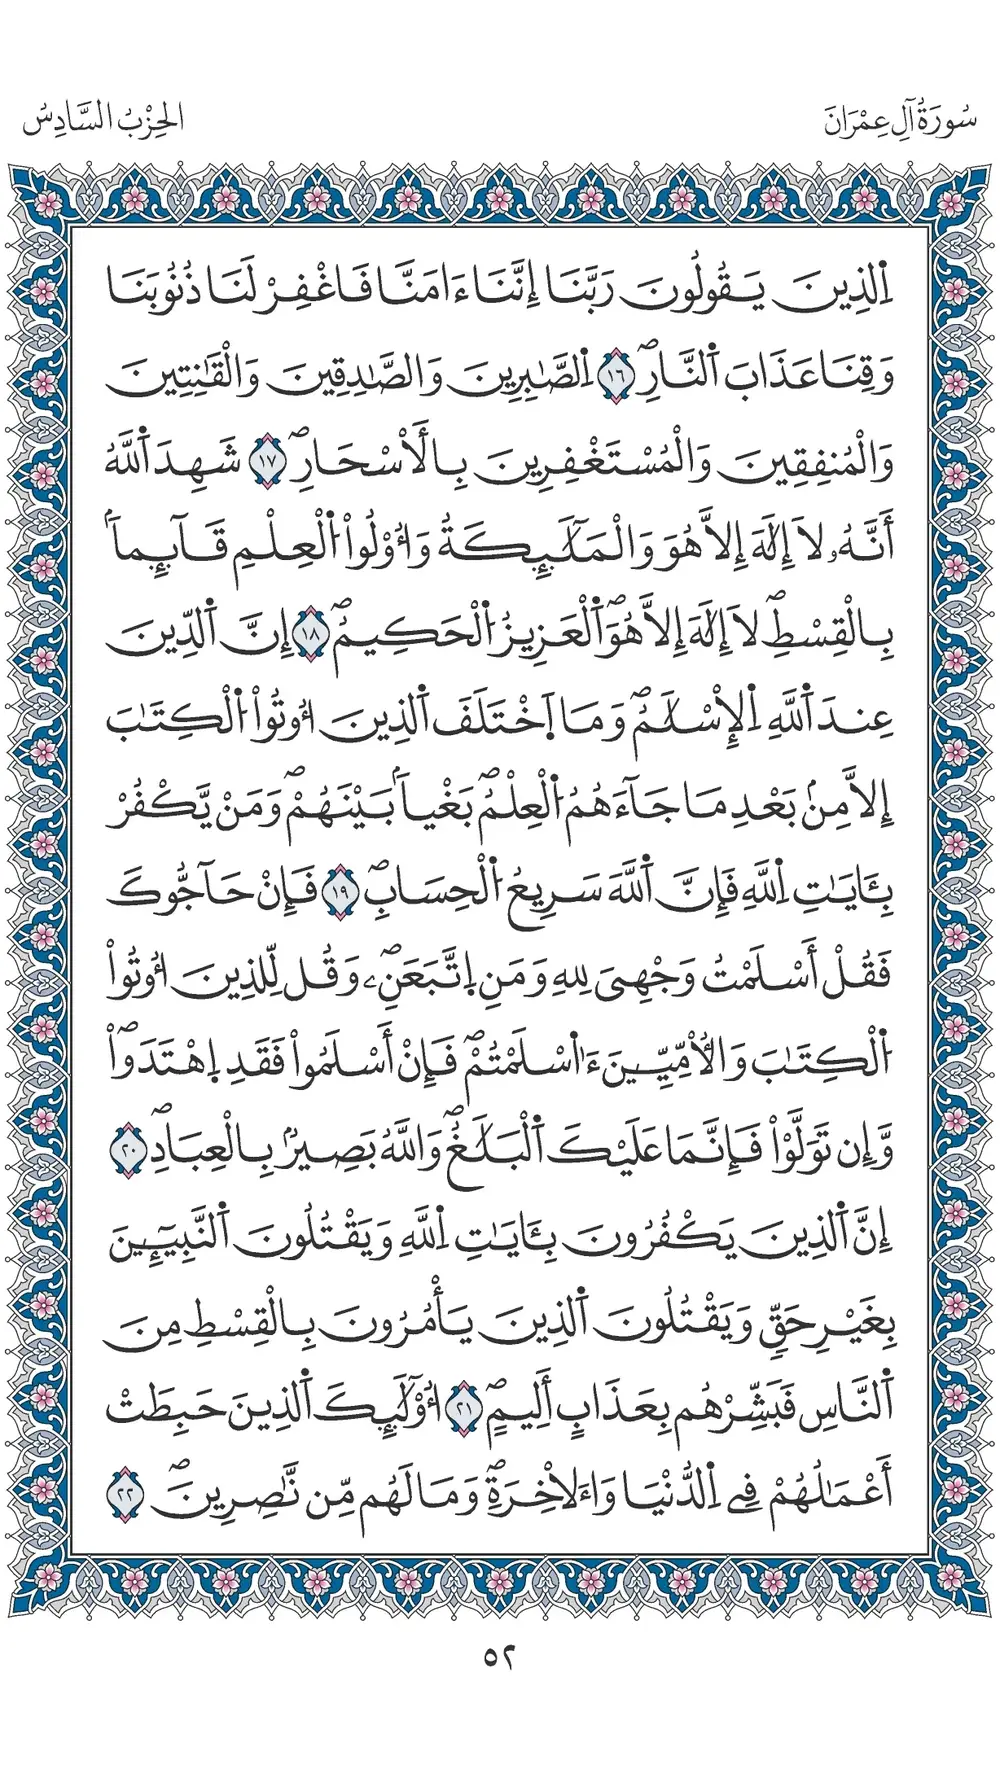 سُورَةُ آلِ عِمْرَانَ
الحِزْبُ السَّادِسُ
اِ۬لذِينَ يَقُولُونَ رَبَّنَا إِنَّنَا ءَامَنَّا فَاغْفِرْ لَنَا ذُنُوبَنَا
وَقِنَا عَذَابَ اَ۬لنَّارِۖ ١٦ اِ۬لصَّٰبِرِينَ وَالصَّٰدِقِينَ وَالْقَٰنِتِينَ
وَالْمُنفِقِينَ وَالْمُسْتَغْفِرِينَ بِالَاسْحَارِۖ ١٧ شَهِدَ اَ۬للَّهُ
أَنَّهُۥ لَا إِلَٰهَ إِلَّا هُوَ وَالْمَلَٰٓئِكَةُ وَأُوْلُواْ اُ۬لْعِلْمِ قَآئِماَۢ
بِالْقِسْطِۖ لَا إِلَٰهَ إِلَّا هُوَۖ اَ۬لْعَزِيزُ اُ۬لْحَكِيمُۖ ١٨ إِنَّ اَ۬لدِّينَ
عِندَ اَ۬للَّهِ اِ۬لِاسْلَٰمُۖ وَمَا اَ۪خْتَلَفَ اَ۬لذِينَ أُوتُواْ اُ۬لْكِتَٰبَ
إِلَّا مِنۢ بَعْدِ مَا جَآءَهُمُ اُ۬لْعِلْمُۖ بَغْياَۢ بَيْنَهُمْۖ وَمَنْ يَّكْفُرْ
بِـَٔايَٰتِ اِ۬للَّهِ فَإِنَّ اَ۬للَّهَ سَرِيعُ اُ۬لْحِسَابِۖ ١٩ فَإِنْ حَآجُّوكَ
فَقُلْ أَسْلَمْتُ وَجْهِيَ لِلهِ وَمَنِ اِ۪تَّبَعَنِۦۖ وَقُل لِّلذِينَ أُوتُواْ
اُ۬لْكِتَٰبَ وَالُامِّيِّـۧنَ ءَآسْلَمْتُمْۖ فَإِنْ أَسْلَمُواْ فَقَدِ اِ۪هْتَدَواْۖ
وَّإِن تَوَلَّوْاْ فَإِنَّمَا عَلَيْكَ اَ۬لْبَلَٰغُۖ وَاللَّهُ بَصِيرُۢ بِالْعِبَادِۖ ٢٠
إِنَّ اَ۬لذِينَ يَكْفُرُونَ بِـَٔايَٰتِ اِ۬للَّهِ وَيَقْتُلُونَ اَ۬لنَّبِيٓـِٕينَ
بِغَيْرِ حَقٍّ وَيَقْتُلُونَ اَ۬لذِينَ يَأْمُرُونَ بِالْقِسْطِ مِنَ
اَ۬لنَّاسِ فَبَشِّرْهُم بِعَذَابٍ أَلِيمٍۖ ٢١ اُوْلَٰٓئِكَ اَ۬لذِينَ حَبِطَتْ
أَعْمَٰلُهُمْ فِے اِ۬لدُّنْيَا وَالَاخِرَةِۖ وَمَا لَهُم مِّن نَّٰصِرِينَۖ ٢٢
٥٢